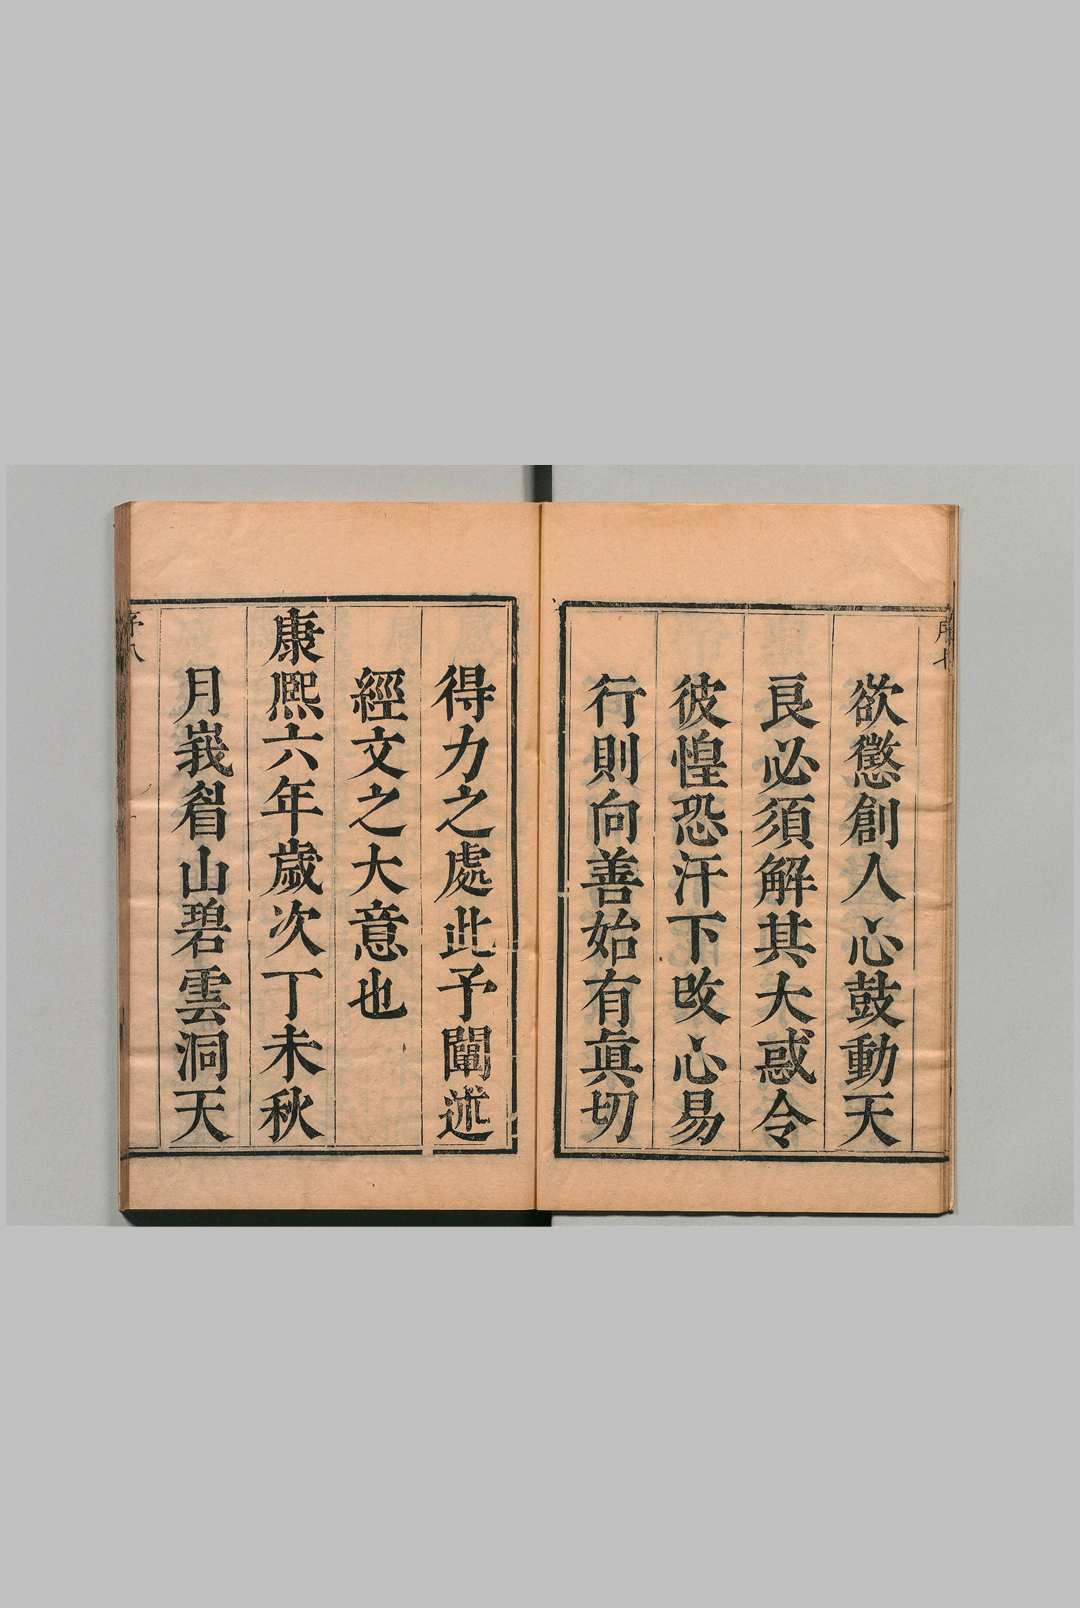 欲懲創人心鼓動天
良必須解其大惑令
彼惶恐汗下改心易
行則向善始有眞切
得力之處此予闡述
經文之大意也
康熙六年歲次丁未秋
月峩眉山碧雲洞天
序八